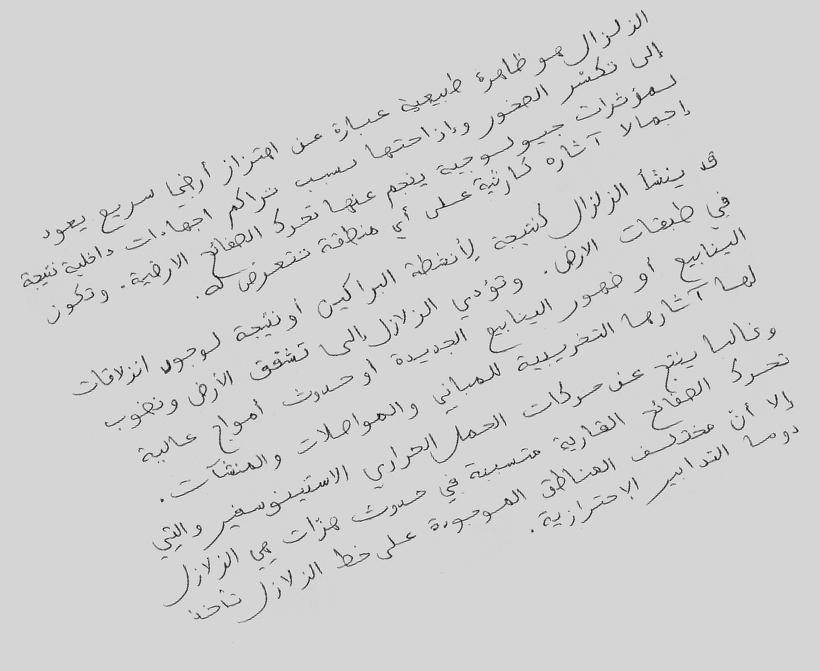 الزلزال هو ظاهرة طبيعية عبارة عن اهتزاز أرضي سريع يعود
إلى تكسّر الصخور وإزاحتها بسبب تراكم اجهادات داخلية نتيجة
لمؤثرات جيولوجية ينجم عنها تحرك الصفائح الارضية. وتكون
إجمالا آثاره كارثية على أي منطقة تتعرض له.
قد ينشأ الزلزال كنتيجة لأنشطة البراكين أو نتيجة لوجود انزلاقات
في طبقات الارض. وتؤدي الزلازل إلى تشقق الأرض ونضوب
الينابيع أو ضهور الينابيع الجديدة أو حدوث أمواج عالية
لها آثارها التخريبية للمباني والمواصلات والمنشآت.
وغالبا ينتج عن حركات الحمل الحراري الاستينوسفير والتي
تحرك الصفائح القارية متسببة في حدوث هزات هي الزلازل
إلا أنّ مختلف المناطق الموجودة على خط الزلازل تأخذ
دوما التدابير الإحترازية.